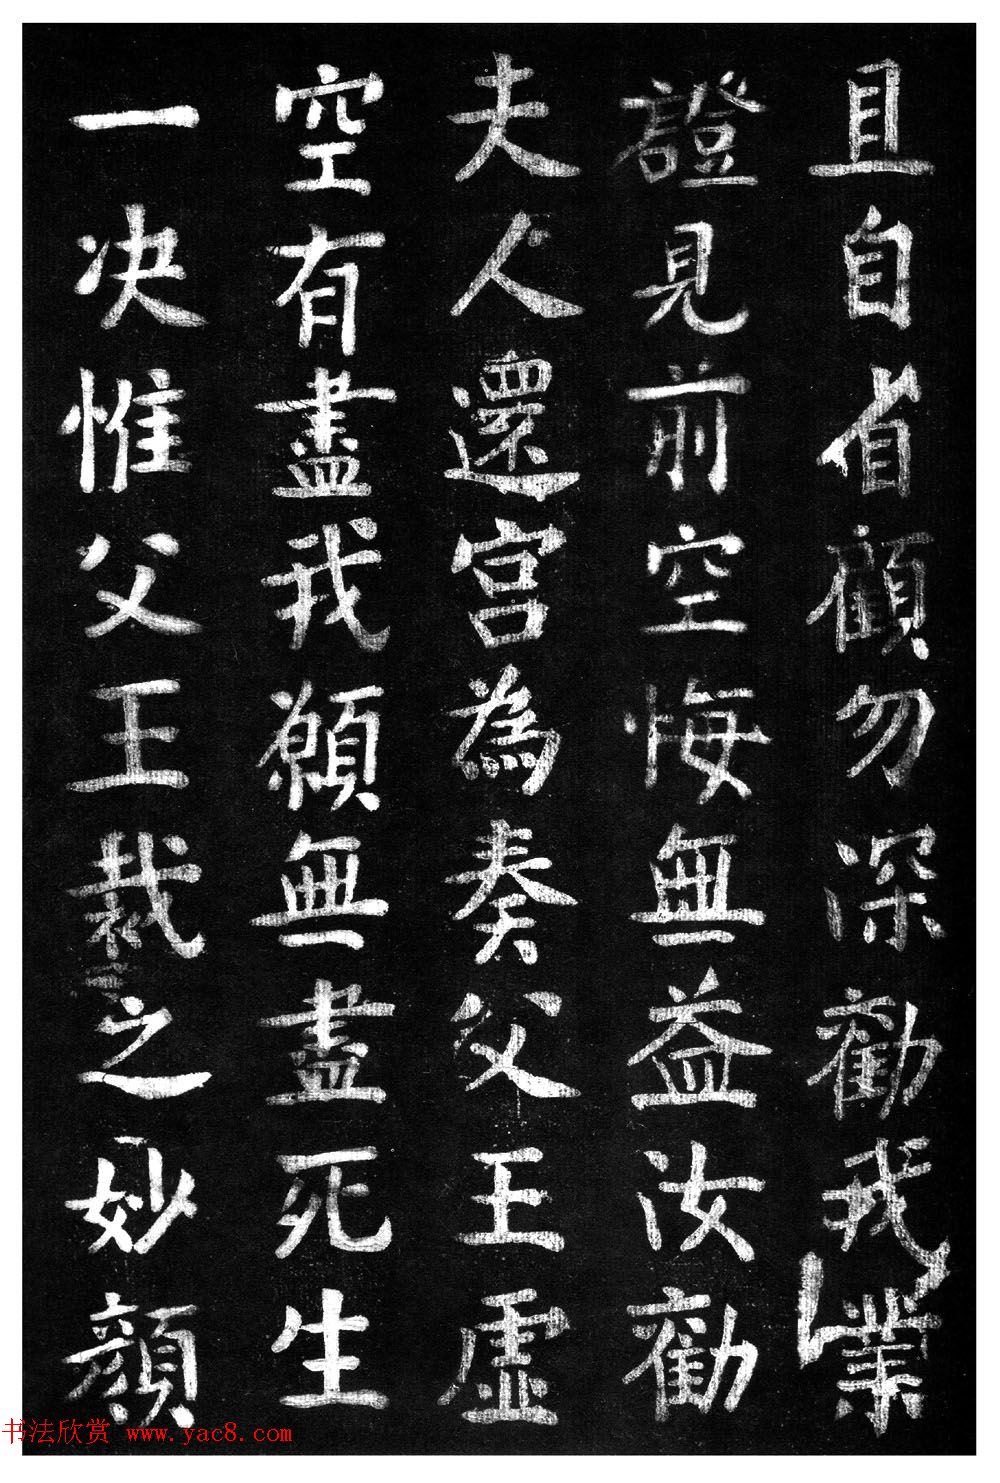 且自省顧勿深勸我業
證見前空悔無益汝勸
夫人還宮為奏父王虛
空有盡我願無盡死生
一决惟父王裁之妙顔
书法欣赏 www.yac8.com